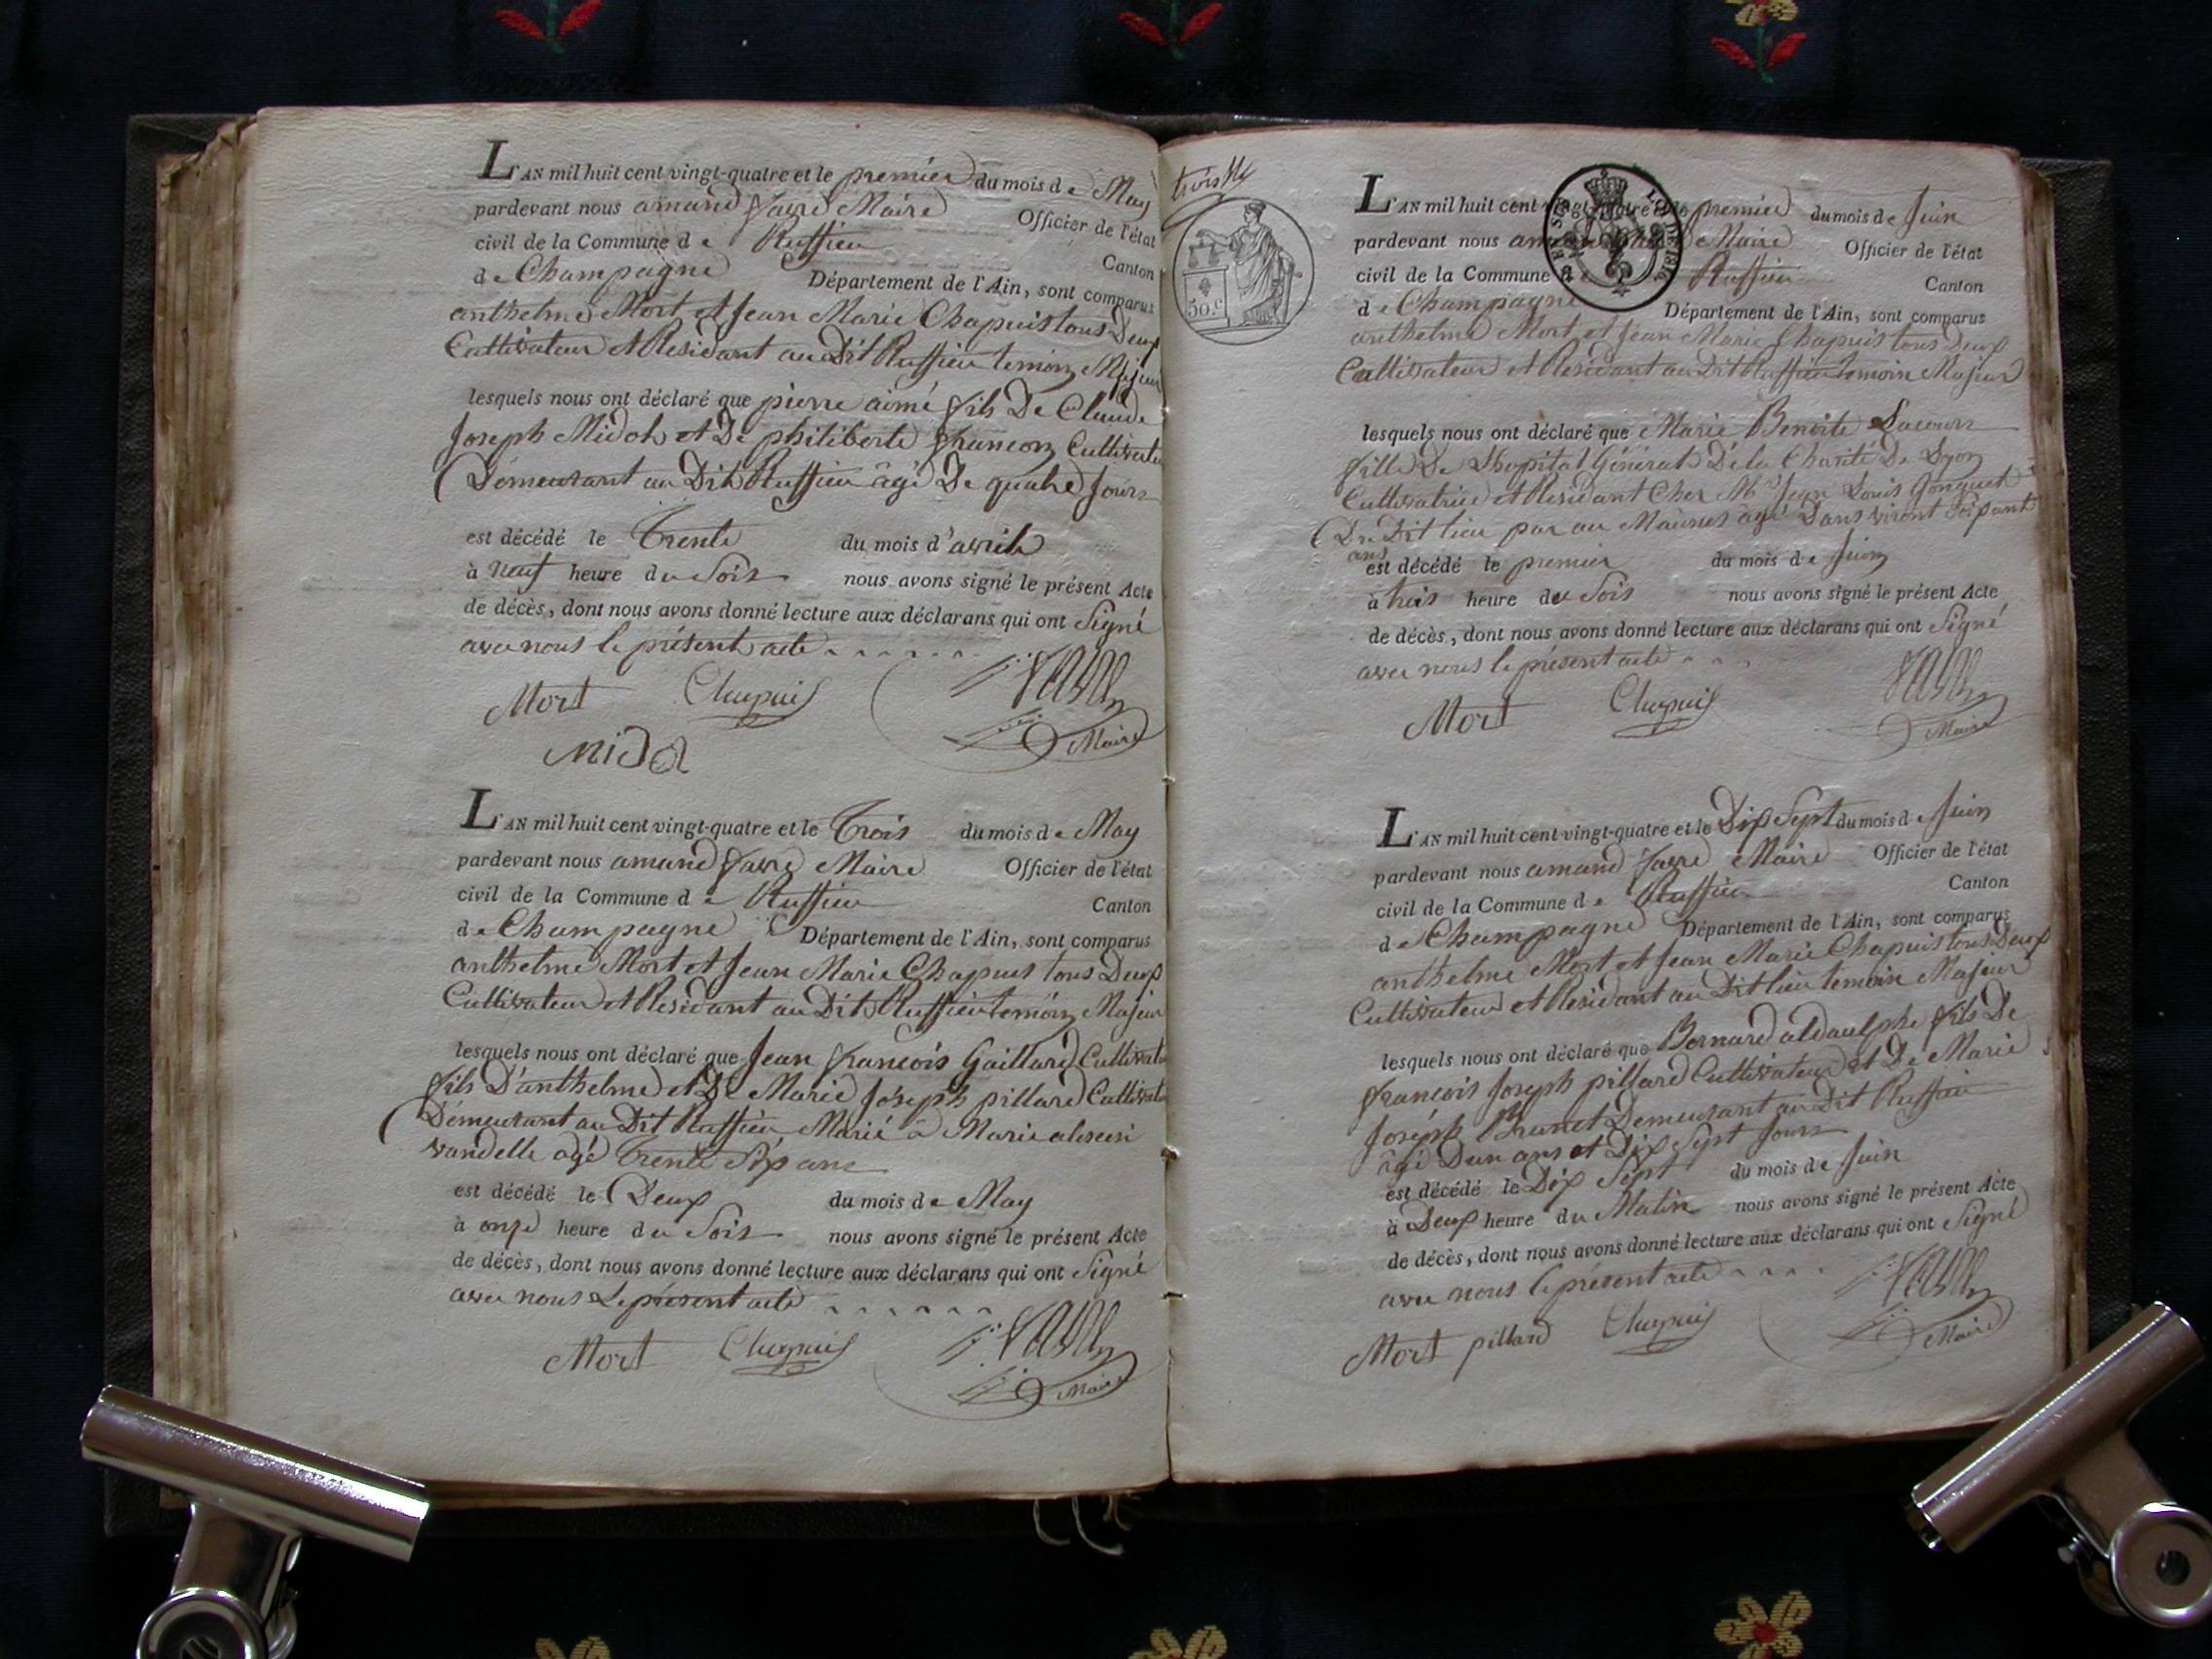 L'AN mil huit cent vingt-quatre et le premier du mois de May
pardevant nous amand favre Maire Officier de l'état
civil de la Commune de Ruffieu Canton
de Champagne Département de l'Ain, sont comparus
anthelme Mort et Jean Marie Chapuis tous Deux
Cultivateur et Residant au Dit Ruffieu temoin Majeur
lesquels nous ont déclaré que pierre aimé fils De Claude
Joseph Midol et De philiberte francon Cultivate
Demeurant au Dit Ruffieu âgé De quatre Jours
est décédé le Trente du mois d'avril
à neuf heure du Soir nous avons signé le présent Acte
de décès, dont nous avons donné lecture aux déclarans qui ont Signé
avec nous le présent acte
Mort Chapuis favre
Maire
Midol
L'AN mil huit cent vingt-quatre et le Trois du mois de May
pardevant nous amand favre Maire Officier de l'état
civil de la Commune de Ruffieu Canton
de Champagne Département de l'Ain, sont comparus
anthelme Mort et Jean Marie Chapuis tous Deux
Cultivateur et Residant au Dit Ruffieu temoin Majeur
lesquels nous ont déclaré que Jean francois Gaillard Cultivat
fils D'anthelme et De Marie Joseph pillard Cultivat
Demeurant au Dit Ruffieu Marié a Marie
vandelle agé Trente Six ans
est décédé le Deux du mois de May
à onze heure du Soir nous avons signé le présent Acte
de décès, dont nous avons donné lecture aux déclarans qui ont Signé
avec nous Le présent acte
Mort Chapuis favre
Maire
trois
50.c
L'AN mil huit cent vingt-quatre et le premier du mois de Juin
pardevant nous Maire Officier de l'état
civil de la Commune de Ruffieu Canton
de Champagne Département de l'Ain, sont comparus
anthelme Mort et Jean Marie Chapuis tous Deux
Cultivateur et Residant au Dit Ruffieu temoin Majeur
lesquels nous ont déclaré que Marie Benoite Lacour
fille De Lhopital Général De la Charité De Lyon
Cultivatrice et Residant Chez Mr Jean Louis Jonquet
Du Dit lieu par au agé Dans viront Soixante
ans
est décédé le premier du mois de Juin
à trois heure du Soir nous avons signé le présent Acte
de décès, dont nous avons donné lecture aux déclarans qui ont Signé
avec nous le présent acte
Mort Chapuis favre
Maire
L'AN mil huit cent vingt-quatre et le Dix Sept du mois de Juin
pardevant nous amand favre Maire Officier de l'état
civil de la Commune de Ruffieu Canton
de Champagne Département de l'Ain, sont comparus
anthelme Mort et Jean Marie Chapuis tous Deux
Cultivateur et Residant au Dit lieu temoin Majeur
lesquels nous ont déclaré que Bernard aldaulphe fils De
francois Joseph pillard Cultivateur et De Marie
Joseph Brunet Demeurant au Dit Ruffieu
âgé Dun ans et Dix Sept Jours
est décédé le Dix Sept du mois de Juin
à Deux heure du Matin nous avons signé le présent Acte
de décès, dont nous avons donné lecture aux déclarans qui ont Signé
avec nous le présent acte
Mort pillard Chapuis favre
Maire